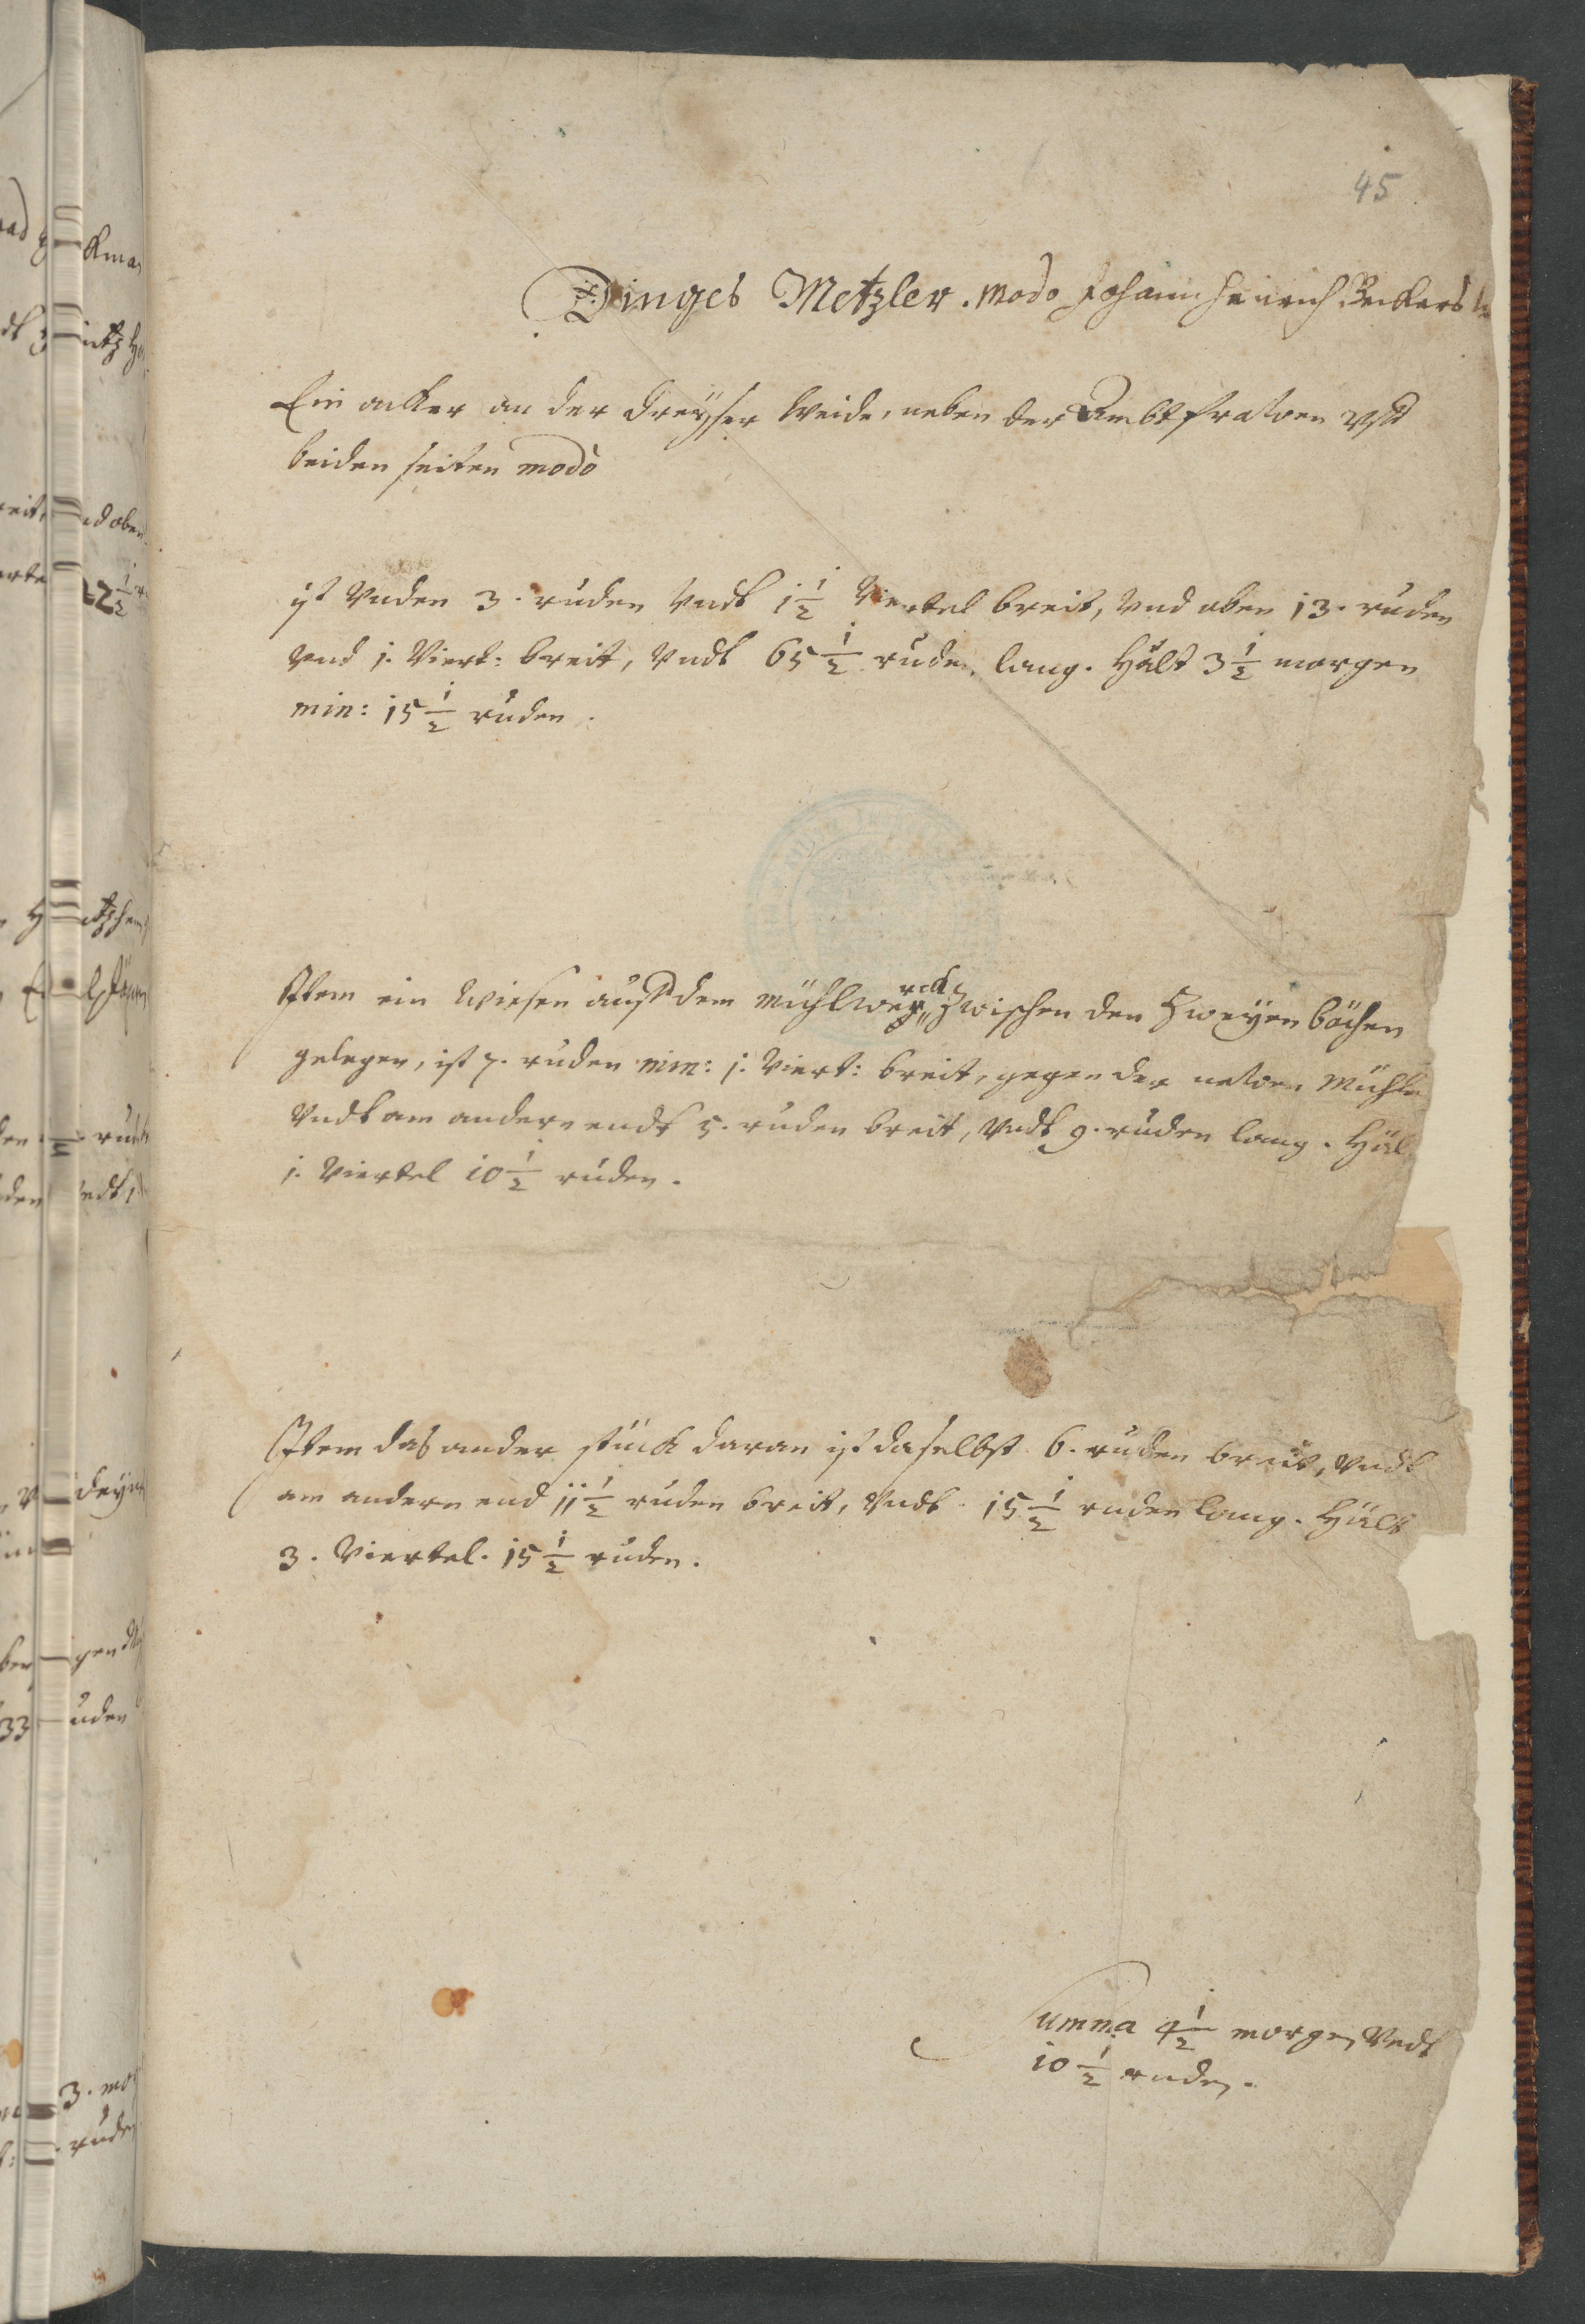 45
Dinges Metzler. modo Johann Henrich Beckers
Ein acker an der dreyser Weide, neben der Ambtfrawen vff
beiden seiten modò
ist Vnden 3. ruden Vndt 1 1/2 Viertel breit, Vnd oben 13. ruden
Vnd 1. Viert: breit, Vndt 65 1/2 ruden lang. Hält 3 1/2 morgen
min: 15 1/2 ruden.
Item ein Wiesen auff dem Mühlwerck Zwischen den Zweyen bächen
gelegen, ist 7. ruden min: 1. Viert: breit, gegen der newen Mühle
Vndt am andern endt 5. ruden breit, Vndt 9. ruden lang. Häl
1. Viertel 10 1/2 ruden.
Item das ander stück daran ist daselbst 6. ruden breit, Vndt
am andern end 11 1/2 ruden breit, Vndt 15 1/2 ruden lang. Hält
3. Viertel. 15 1/2 ruden.
Summa 4 1/2 morgen Vndt
10 1/2 ruden.